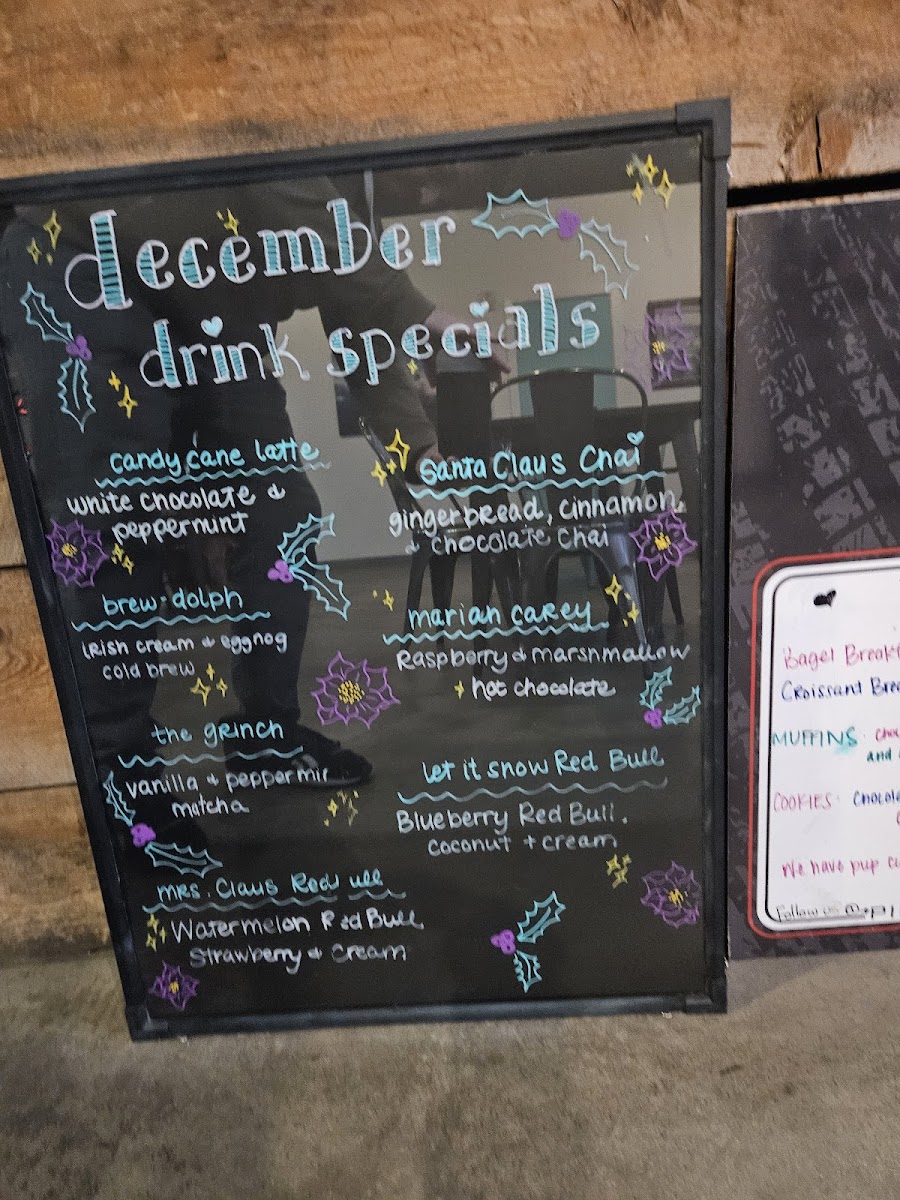 december
drink specials
candy cane latte
white chocolate &
peppermint
brew-dolph
irish cream & eggnog
cold brew
the grinch
vanilla & peppermi
matcha
mrs. Claus Red ull
Watermelon Red Bull
Strawberry & Cream
Santa Claus Chai
gingerbread, cinnamon,
& chocolate chai
marian carey
Raspberry & marshmallow
hot chocolate
let it snow Red Bull
Blueberry Red Bull,
coconut + cream
Bagel Break
Croissant Brea
MUFFINS
and
COOKIES: Chocola
We have pup cu
Follow us